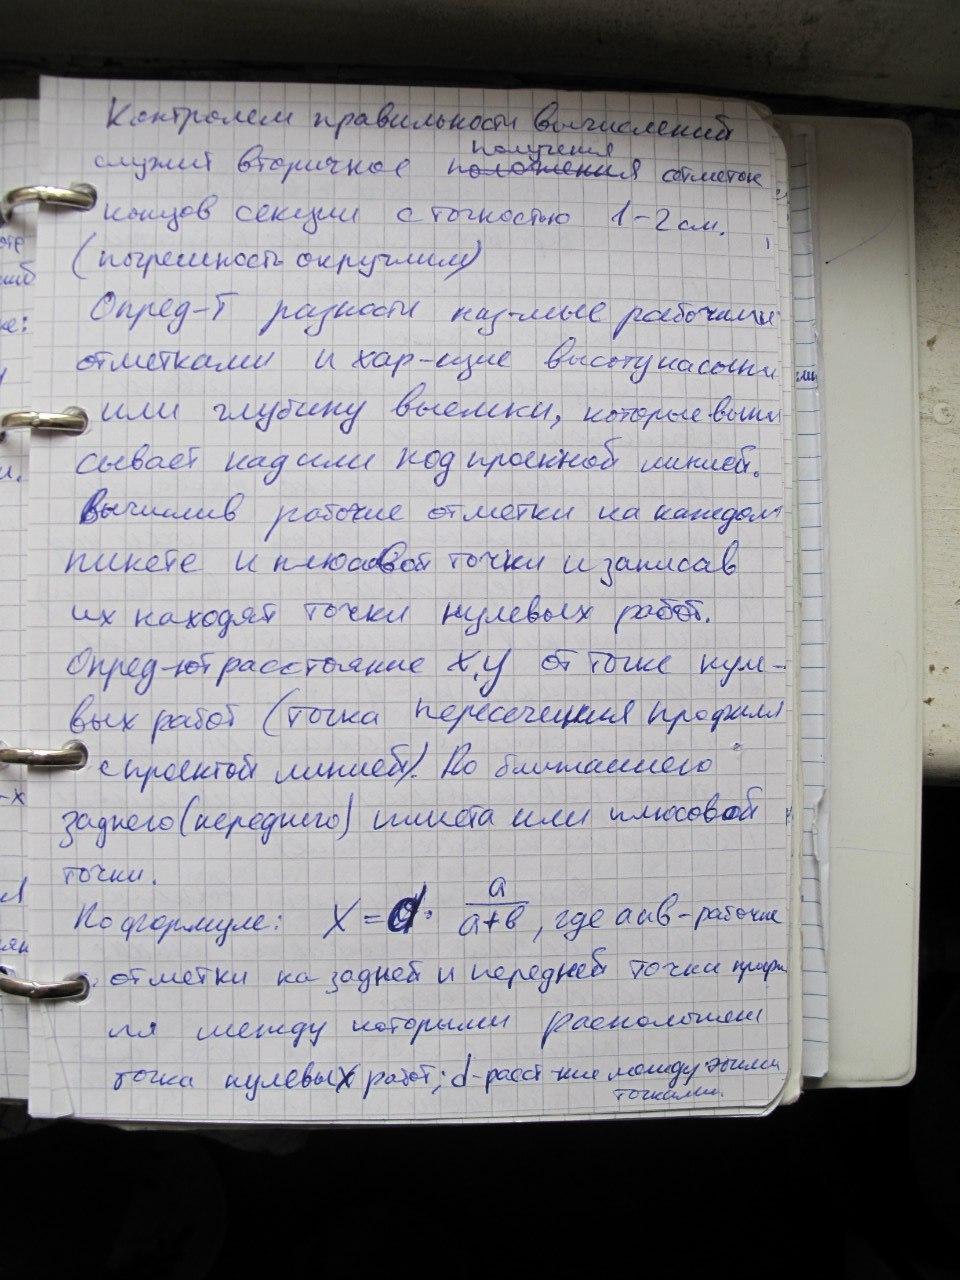 Контролем правильности вычислений
получения
служит вторичное положения отметок
концов секции с точностью 1-2 см.
(погрешность округлили)
Опред-т разности наз-мые рабочими
отметками и хар-щие высоту насыпи
или глубину выемки, которые выпи
сывает над или под проектной линией.
Вычислив рабочие отметки на каждом
пикете и плюсовой точки и записав
их находят точки нулевых работ.
Опред-ют расстояние x,y от точке нуле-
вых работ (точка пересечения профиля
с проектой линией). До ближайшего
заднего (переднего) пикета или плюсовой
точки.
По формуле: X = d · a/a+в, где а и в - рабочие
отметки на задней и передней точки профи
ля между которыми расположен
точка нулевых работ; d - расст-ние между этими
точками.